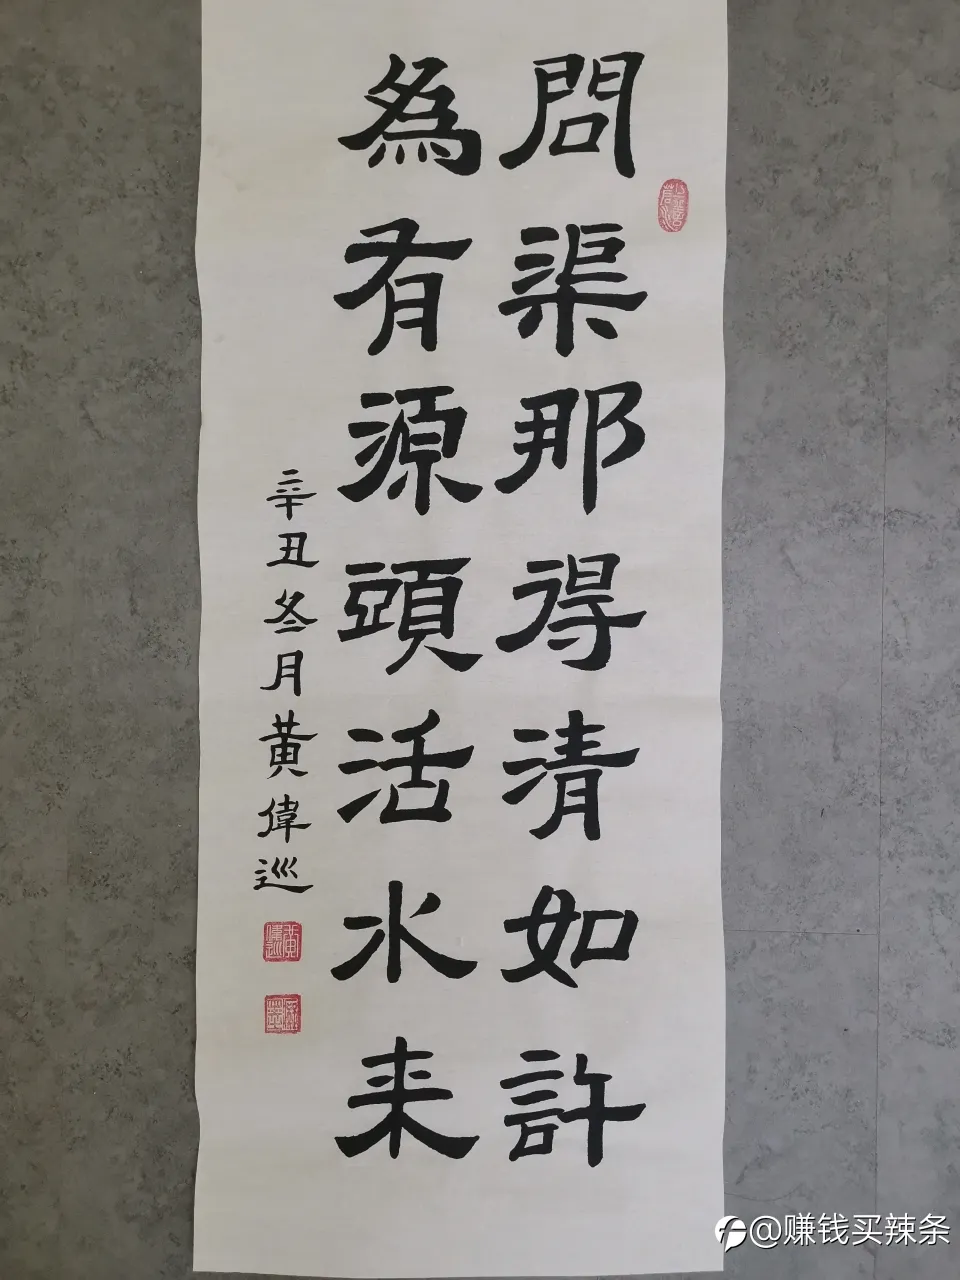 問渠那得清如許
為有源頭活水来
辛丑冬月黄偉巡
@赚钱买辣条